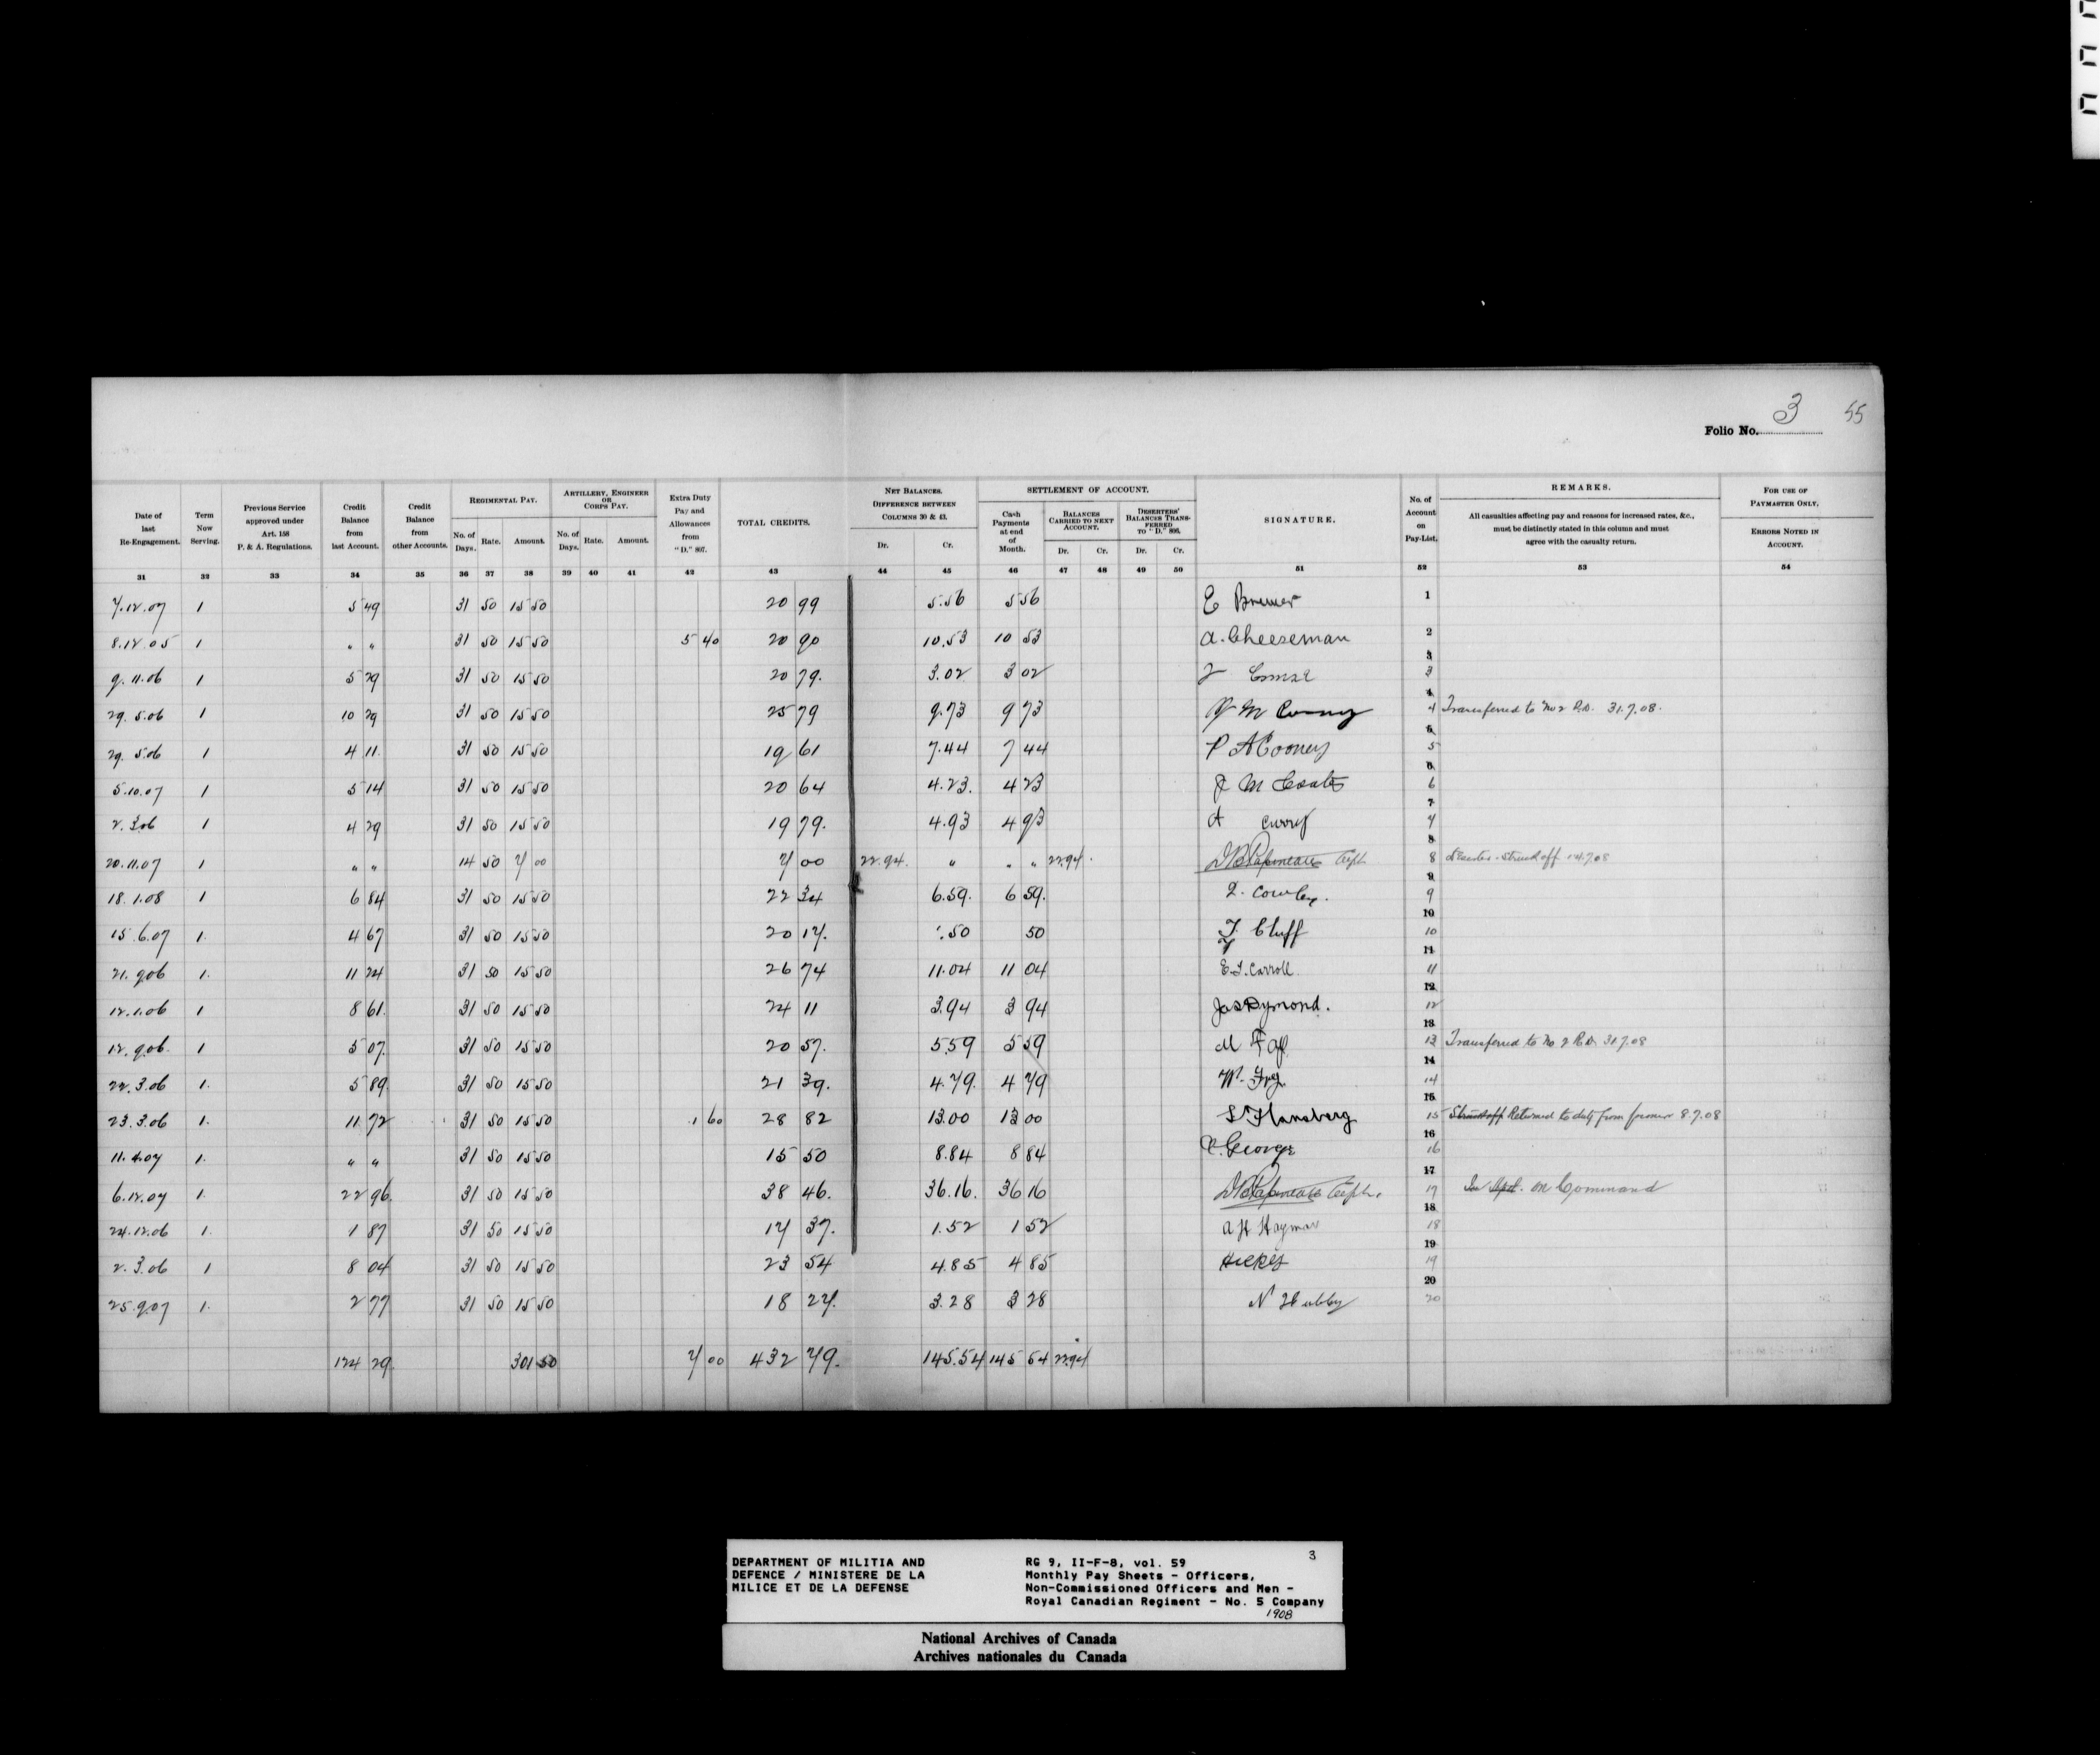 3 55
Folio No.
Date of last Re-Engagement. Term Now Serving. Previous Service approved under Art. 158 P. & A. Regulations. Credit Balance from last Account. Credit Balance from other Accounts. REGIMENTAL PAY. No. of Days. Rate. Amount. ARTILLERY, ENGINEER OR CORPS PAY. No. of Days. Rate. Amount. Extra Duty Pay and Allowances from "D." 807. TOTAL CREDITS. NET BALANCES. DIFFERENCE BETWEEN COLUMNS 30 & 43. Dr. Cr. SETTLEMENT OF ACCOUNT. Cash Payments at end of Month. BALANCES CARRIED TO NEXT ACCOUNT. Dr. Cr. DESERTERS' BALANCES TRANSFERRED TO "D." 806. Dr. Cr. SIGNATURE. No. of Account on Pay-List. REMARKS. All casualties affecting pay and reasons for increased rates, &c., must be distinctly stated in this column and must agree with the casualty return. FOR USE OF PAYMASTER ONLY. ERRORS NOTED IN ACCOUNT.
31 32 33 34 35 36 37 38 39 40 41 42 43 44 45 46 47 48 49 50 51 52 53 54
7.12.07 1 5 49 31 50 15 50 20 99 5.56 5 56 E Bremer 1
8.12.05 1 " " 31 50 15 50 5 40 20 90 10.53 10 53 A. Cheeseman 2
9.11.06 1 5 29 31 50 15 50 20 79. 3.02 3 02 3
29.5.06 1 10 29 31 50 15 50 25 79 9.73 9 73 4 Transferred to No 2 R.D. 31.7.08.
29.5.06 1 4 11. 31 50 15 50 19 61 7.44 7 44 P A Cooney 5
5.10.07 1 5 14 31 50 15 50 20 64 4.23. 4 23 J M Coates 6
2.3.06 1 4 29 31 50 15 50 19 79. 4.93 4 93 A Curry 7
20.11.07 1 " " 14 50 7 00 7 00 22.94. " " " 22.94. D B Papineau Capt 8 Struck off 14.7.08
18.1.08 1 6 84 31 50 15 50 22 34 6.59. 6 59. Cowley. 9
15.6.07 1. 4 67 31 50 15 50 20 17. .50 50 T. Cluff 10
21.9.06 1. 11 24 31 50 15 50 26 74 11.04 11 04 E. J. Carroll 11
12.1.06 1 8 61. 31 50 15 50 24 11 3.94 3 94 Jas Dymond. 12
12.9.06. 1 5 07. 31 50 15 50 20 57. 5.59 5 59 M 13 Transferred to No 2 R.D. 31.7.08
22.3.06 1. 5 89. 31 50 15 50 21 39. 4.79. 4 79 W. Frey. 14
23.3.06 1. 11 72 31 50 15 50 1 60 28 82 13.00 13 00 S Flansberg 15 Struck off Returned to duty from 8.7.08
11.4.07 1. " " 31 50 15 50 15 50 8.84 8 84 George 16
6.12.07 1. 22 96. 31 50 15 50 38 46. 36.16. 36 16 D B Papineau Capt. 17 on Command
24.12.06 1. 1 87 31 50 15 50 17 37. 1.52 1 52 A H Hayman 18
2.3.06 1 8 04 31 50 15 50 23 54 4.85 4 85 Hickey 19
25.9.07 1. 2 77 31 50 15 50 18 27. 3.28 3 28 N Hubby 20
124 29. 301 50 7 00 432 79. 145.54 145 54 22.94
DEPARTMENT OF MILITIA AND
DEFENCE / MINISTERE DE LA
MILICE ET DE LA DEFENSE
RG 9, II-F-8, vol. 59 3
Monthly Pay Sheets - Officers,
Non-Commissioned Officers and Men -
Royal Canadian Regiment - No. 5 Company
1908
National Archives of Canada
Archives nationales du Canada